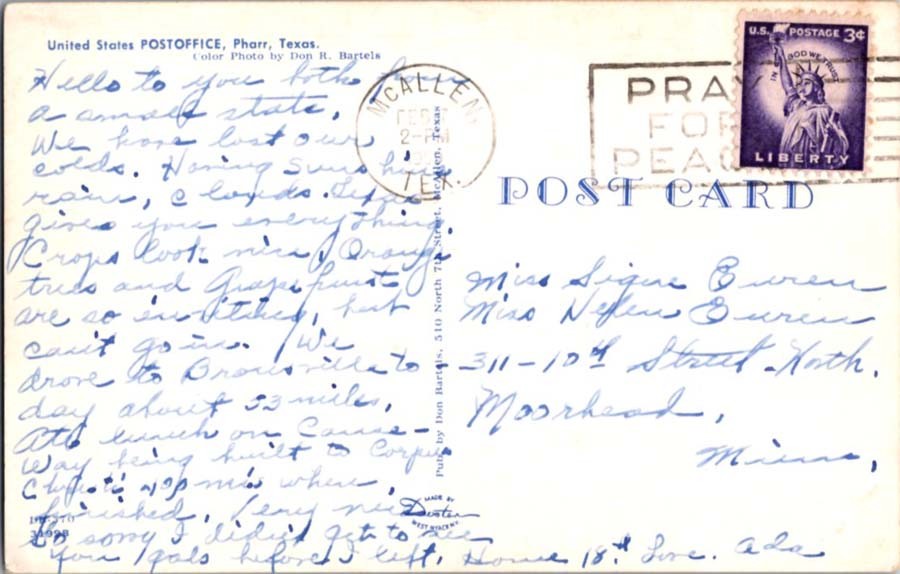 United States POSTOFFICE, Pharr, Texas.
Color Photo by Don R. Bartels
Hello to you both from
a small state,
We have lost our
colds. Having sunshine
rain, clouds. Texas
gives you everything.
Crops look nice, Orange
trees and Grapefruit
are so inviting, but
can't go in. We
drove to Brownsville to
day about 53 miles,
Ate lunch on Cause-
way being built to Corpus
Christi 400 mi when
finished, Very nice
So sorry I didn't get to see
you gals before I left, Home 18th Love. Ada
McALLEN
FEB
2-PM
TEX.
Pub. by Don Bartels, 510 North 7th Street, McAllen, Texas
PRAY
FOR
PEACE
U.S. POSTAGE 3¢
IN GOD WE TRUST
LIBERTY
POST CARD
Miss Signe
Miss Helen
311-10th Street North,
Moorhead,
Minn,
MADE BY
Dexter
WEST NYACK N.Y.